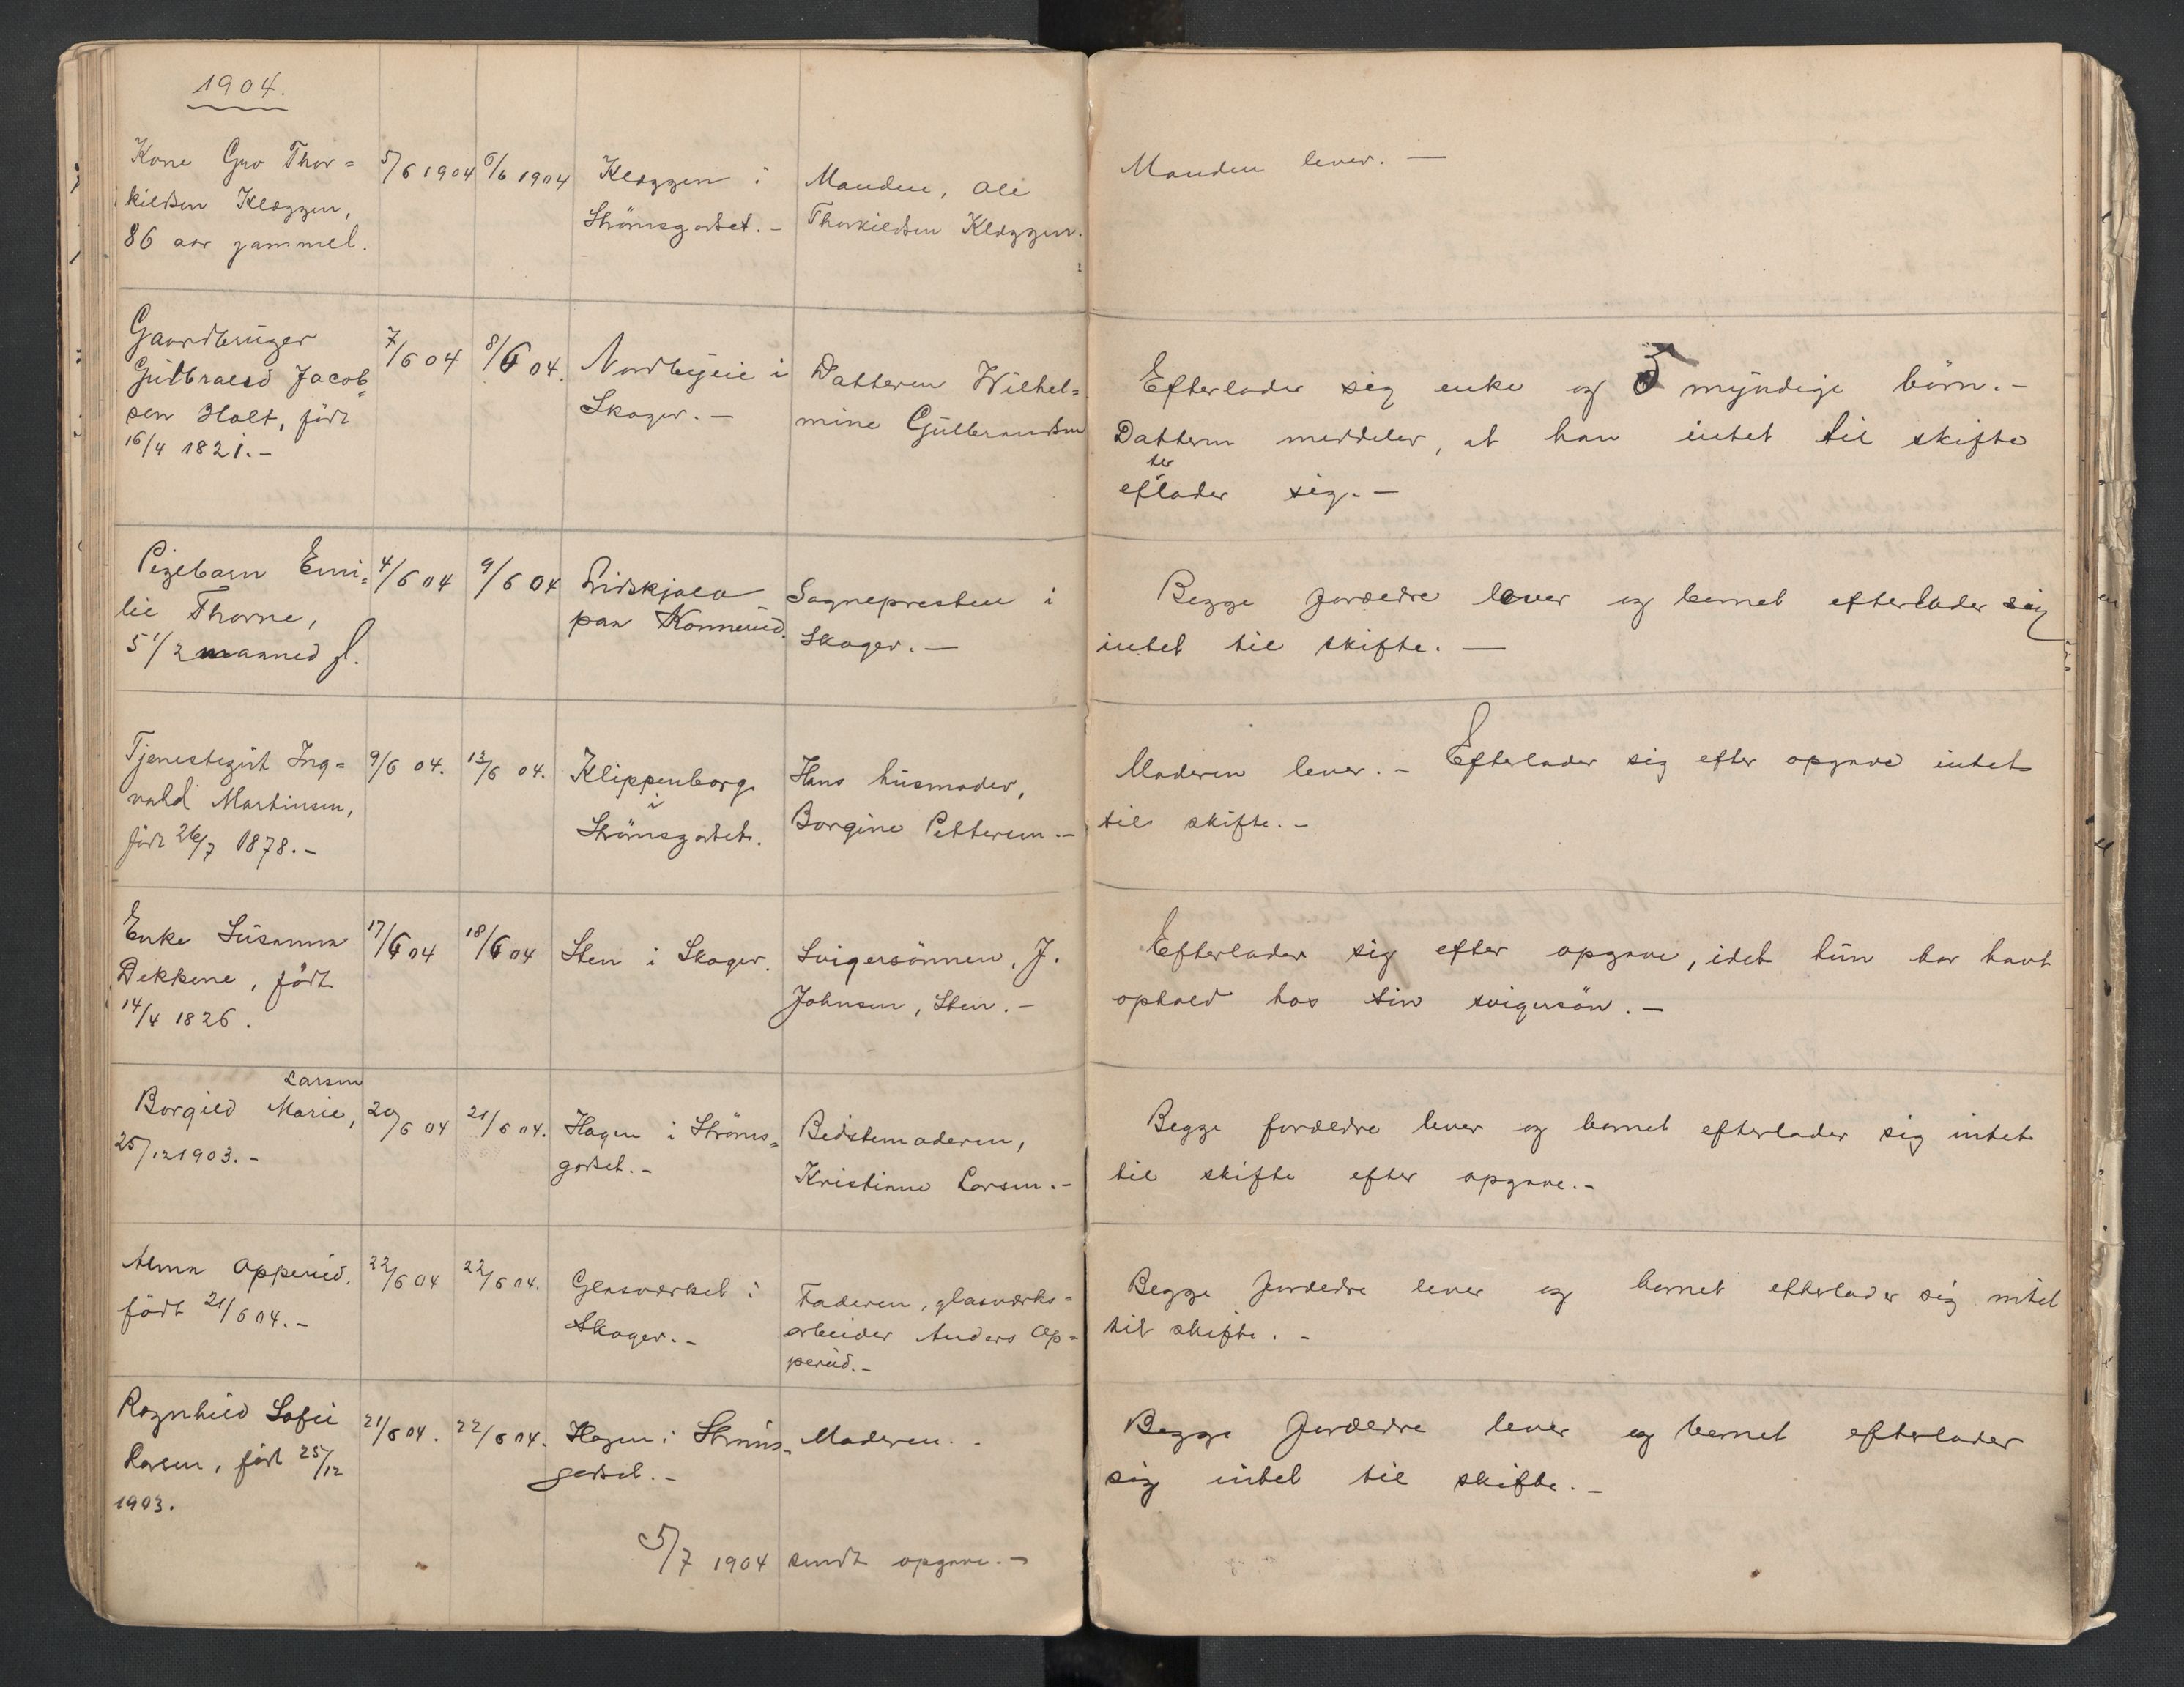 1904.
Kone Gro Thor=
kildsen Kleggen,
86 aar gammel.
5/6 1904
6/6 1904
Kleggen i
Strömsgodset. -
Manden, Ole
Thorkildsen Kleggen.
Manden lever. —
Gaardbruger
Gulbrand Jacob=
sen Holt, född
16/4 1821. -
7/6 04
8/6 04.
Nordbyeie i
Skoger. —
Datteren Wilhel=
mine Gulbrandsen
Efterlader sig enke og 5 myndige börn. -
Datteren meddeler, at han intet til skifte
ter
eflader sig. —
Pigebarn Emi=
lie Thorne,
5 1/2 maaned gl.
4/6 04
9/6 04
Lidskjalv
paa Konnerud.
Sognepresten i
Skoger. —
Begge forældre lever og barnet efterlader sig
intet til skifte. —
Tjenestegut Ing=
vald Martinsen,
född 26/7 1878. -
9/6 04.
13/6 04.
Klippenborg
i
Strömsgodset.
Hans husmoder,
Borgine Pettersen. -
Moderen lever. - Efterlader sig efter opgave intet
til skifte. -
Enke Susanna
Dekkene, födt
14/4 1826.
17/6 04
18/6 04
Sten i Skoger.
Svigersönnen, J.
Johnsen, Sten. -
Efterlader sig efter opgave, idet hun har havt
ophold hos sin svigersön. -
Larsen
Borgild Marie,
25/12 1903. -
20/6 04
21/6 04.
Hagen i Ströms=
godset. -
Bedstemoderen,
Kristinne Larsen. -
Begge forældre lever og barnet efterlader sig intet
til skifte efter opgave. -
Alma Opperud,
födt 21/6 04. -
22/6 04
22/6 04.
Glasværket i
Skoger. -
Faderen, glasværks=
arbeider Anders Op=
perud. -
Begge forældre lever og barnet efterlader sig intet
til skifte. -
Ragnhild Sofie
Larsen, född 25/12
1903.
21/6 04.
22/6 04.
Hagen i Ströms=
godset. -
Moderen. -
Begge forældre lever og barnet efterlader
sig intet til skifte. -
5/7 1904 sendt opgave. -